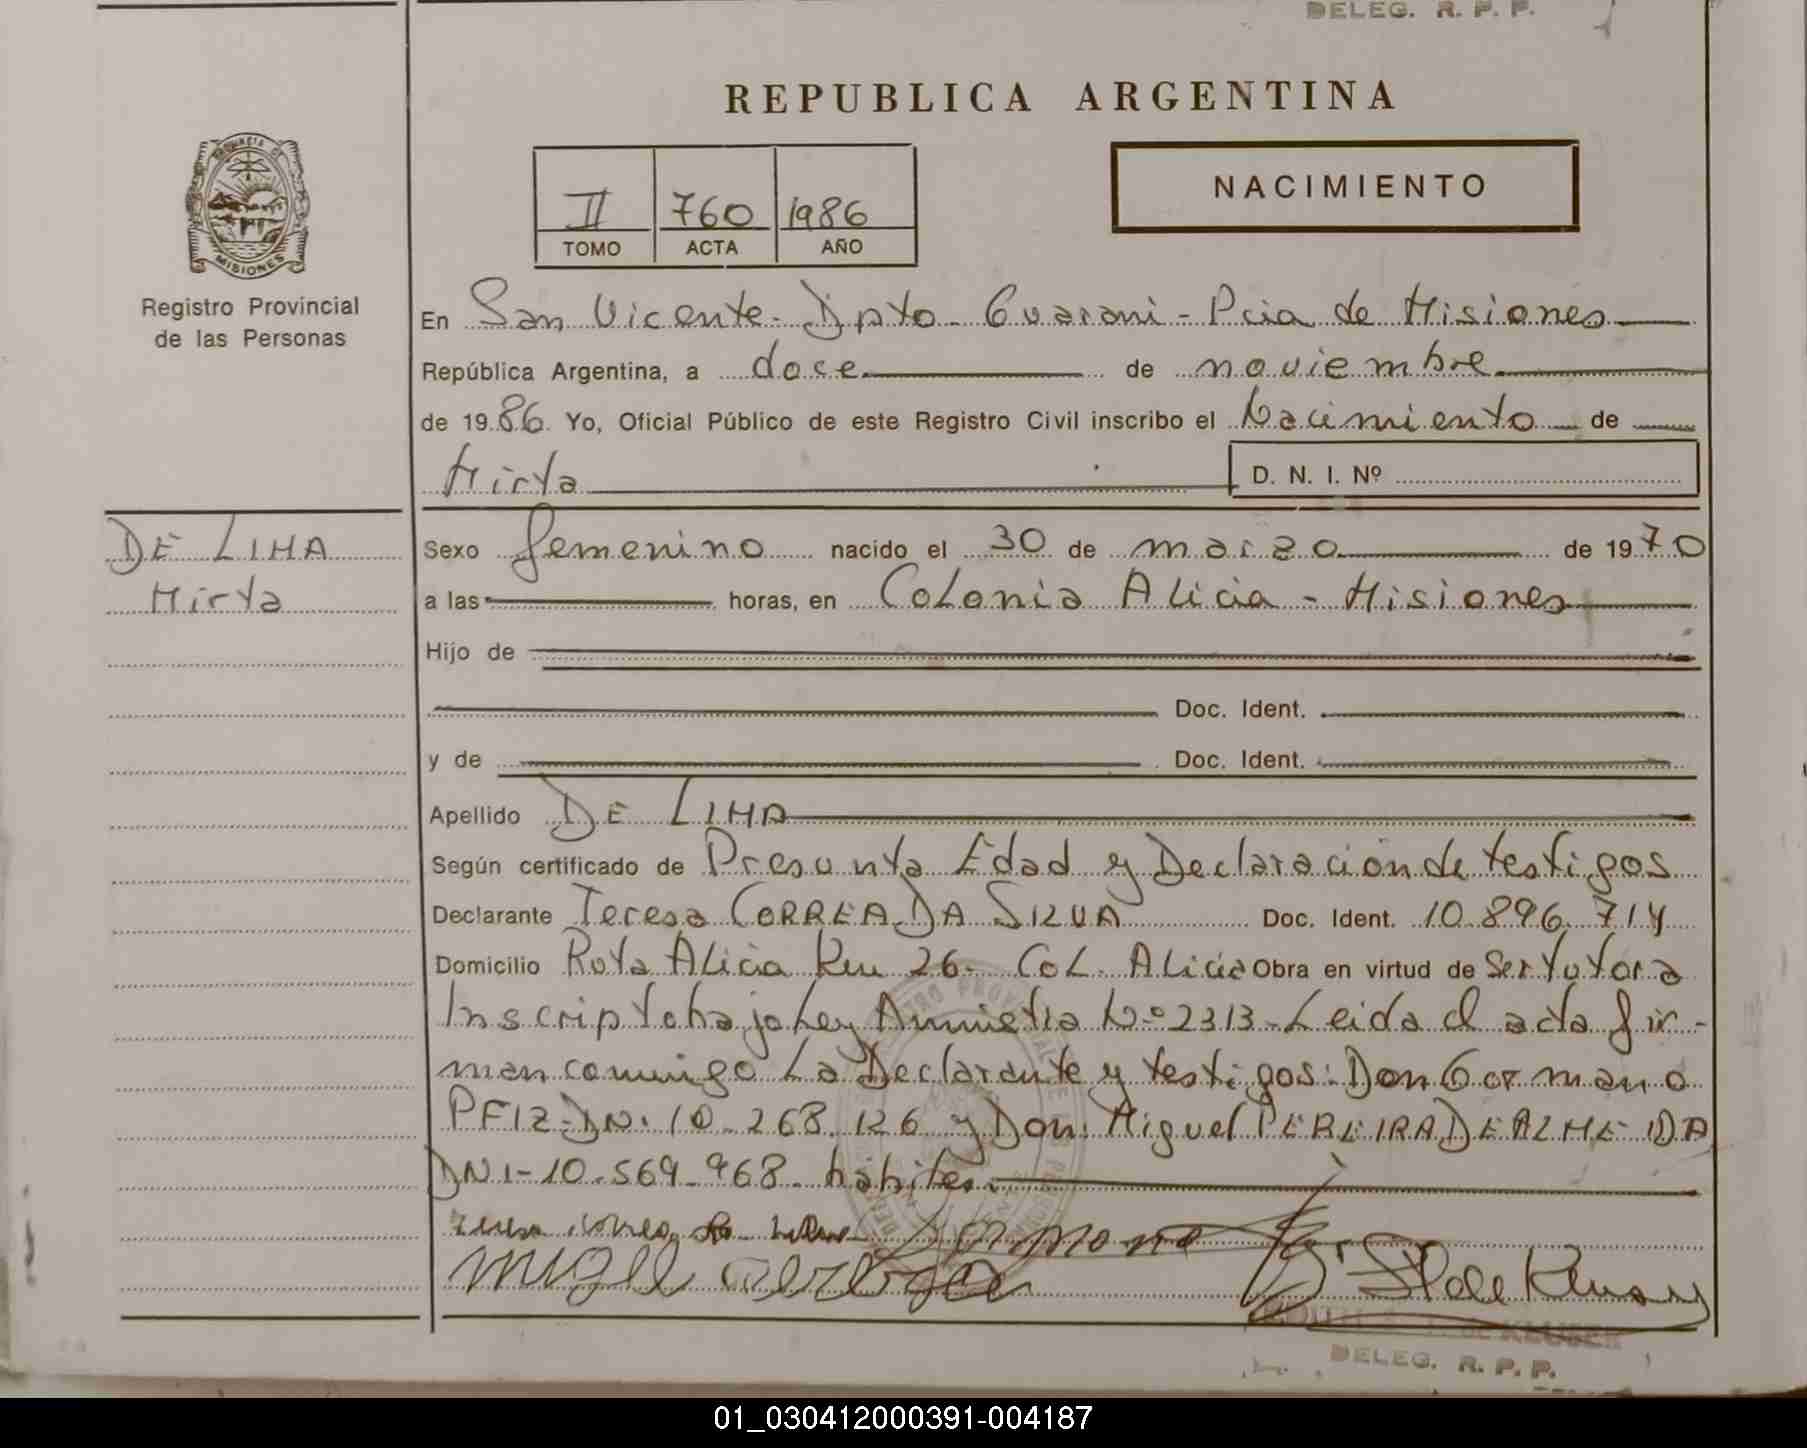 DELEG. R. P. P.
REPUBLICA ARGENTINA
PROVINCIA DE
MISIONES
Registro Provincial
de las Personas
II 760 1986
TOMO ACTA AÑO
NACIMIENTO
En San Vicente - Dpto - Guarani - Pcia de Misiones
República Argentina, a doce de noviembre
de 1986. Yo, Oficial Público de este Registro Civil inscribo el Nacimiento de
Mirta D. N. I. Nº
DE LIMA
Mirta
Sexo femenino nacido el 30 de marzo de 1970
a las horas, en Colonia Alicia - Misiones
Hijo de
Doc. Ident.
y de Doc. Ident.
Apellido DE LIMA
Según certificado de Presunta Edad y Declaración de testigos
Declarante Teresa CORREA DA SILVA Doc. Ident. 10.896.714
Domicilio Ruta Alicia Km 26 - Col. Alicia Obra en virtud de Ser tutora
Inscripto bajo Ley Amnistia Nº 2313 - Leida el acta fir-
man conmigo La Declarante y testigos: Don Germano
PFIZ - DN. 10.268.126 y Don: Miguel PEREIRA DE ALMEIDA
DNI - 10.569.968. hábiles.
Germano
DELEG. R. P. P.
01_030412000391-004187